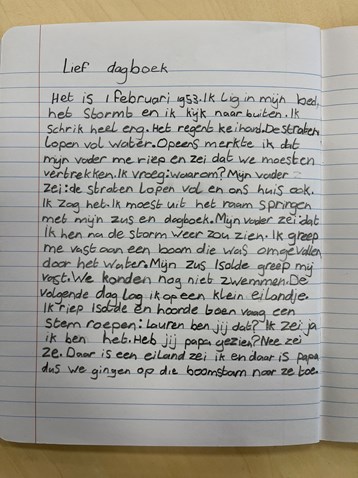 Lief dagboek
Het is 1 februari 1953. Ik lig in mijn bed,
het stormt en ik kijk naar buiten. Ik
schrik heel erg. Het regent keihard. De straten
lopen vol water. Opeens merkte ik dat
mijn vader me riep en zei dat we moesten
vertrekken. Ik vroeg: waarom? Mijn vader
zei: de straten lopen vol en ons huis ook.
Ik zag het. Ik moest uit het raam springen
met mijn zus en dagboek. Mijn vader zei: dat
Ik hen na de storm weer zou zien. Ik greep
me vast aan een boom die was omgevallen
door het water. Mijn zus Isolde greep mij
vast. We konden nog niet zwemmen. De
volgende dag lag ik op een klein eilandje.
Ik riep Isolde en hoorde een vaag een
stem roepen: Lauren ben jij dat? Ik zei ja
ik ben het. Heb jij papa gezien? Nee zei
ze. Daar is een eiland zei ik en daar is papa
dus we gingen op die boomstam naar ze toe.